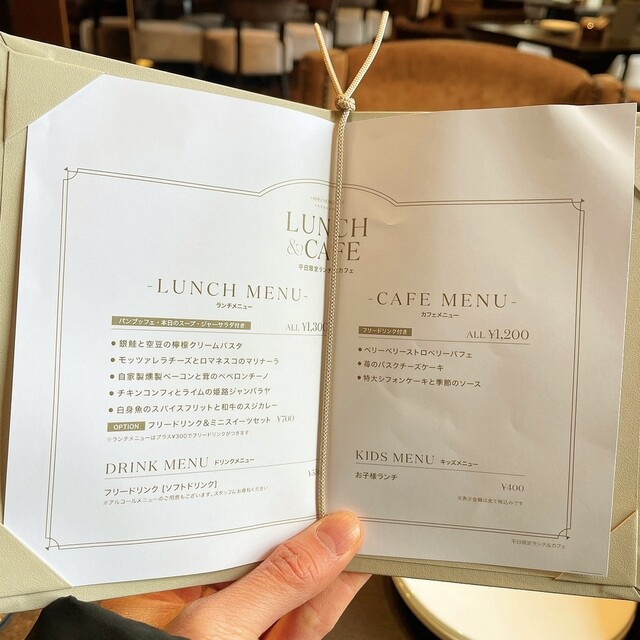 LUNCH
& CAFE
平日限定ランチ&カフェ
-LUNCH MENU-
ランチメニュー
パンブッフェ・本日のスープ・ジャーサラダ付き
ALL ¥1,300
● 銀鮭と空豆の檸檬クリームパスタ
● モッツァレラチーズとロマネスコのマリナーラ
● 自家製燻製ベーコンと茸のペペロンチーノ
● チキンコンフィとライムの姫路ジャンバラヤ
● 白身魚のスパイスフリットと和牛のスジカレー
OPTION フリードリンク&ミニスイーツセット ¥700
※ランチメニューはプラス¥300でフリードリンクがつきます
DRINK MENU ドリンクメニュー
フリードリンク [ソフトドリンク]
※アルコールメニューのご用意もございます。スタッフにお尋ねください
-CAFE MENU-
カフェメニュー
フリードリンク付き
ALL ¥1,200
● ベリーベリーストロベリーパフェ
● 苺のバスクチーズケーキ
● 特大シフォンケーキと季節のソース
KIDS MENU キッズメニュー
お子様ランチ ¥400
※表示金額は全て税込みです
平日限定ランチ&カフェ